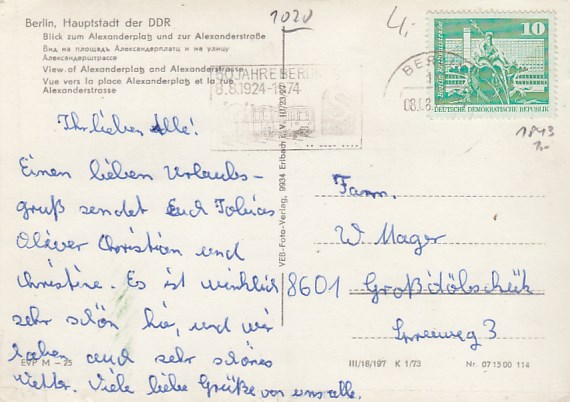 Berlin, Hauptstadt der DDR
Blick zum Alexanderplatz und zur Alexanderstraße
Вид на площадь Александерплатц и на улицу
Александерштрассе
View of Alexanderplatz and Alexanderstrasse
Vue vers la place Alexanderplatz et la rue
Alexanderstrasse
1020
4,-
10
DEUTSCHE DEMOKRATISCHE REPUBLIK
BERLIN
JAHRE BERLIN
8.8.1924-1974
1843
Ihr lieben Alle!
Einen lieben Urlaubs-
gruß sendet Euch Tobias
Oliver Christian und
Christine. Es ist wirklich
sehr schön hie, und wir
haben auch sehr schönes
Wetter. Viele liebe Grüße von uns alle.
VEB-Foto-Verlag, 9934 Erlbach i. V. III/23/27
Fam.
W. Mager
8601 Großdölbschütz
Spreeweg 3
EVP M -25
III/18/197 K 1/73
Nr. 07 15 00 114